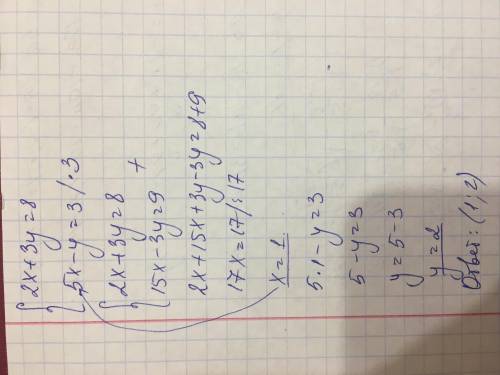 { 2x+3y=8
5x-y=3 /·3
{ 2x+3y=8 +
15x-3y=9
2x+15x+3y-3y=8+9
17x=17/:17
x=1
5·1-y=3
5-y=3
y=5-3
y=2
Ответ: (1;2)